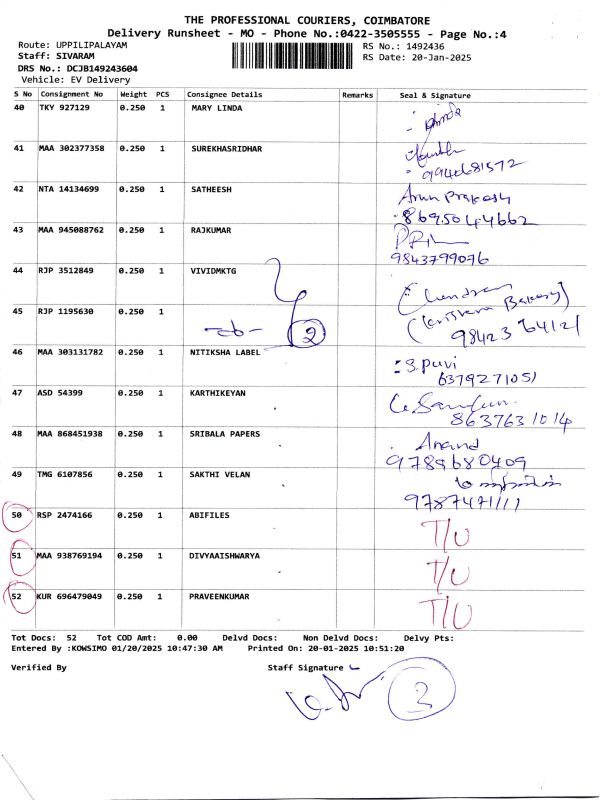 THE PROFESSIONAL COURIERS, COIMBATORE
Delivery Runsheet - MO - Phone No.:0422-3505555 - Page No.:4
Route: UPPILIPALAYAM RS No.: 1492436
Staff: SIVARAM RS Date: 20-Jan-2025
DRS No.: DCJB149243604
Vehicle: EV Delivery
S No Consignment No Weight PCS Consignee Details Remarks Seal & Signature
40 TKY 927129 0.250 1 MARY LINDA
41 MAA 302377358 0.250 1 SUREKHASRIDHAR
42 NTA 14134699 0.250 1 SATHEESH Arun Prakash
8695044662
43 MAA 945088762 0.250 1 RAJKUMAR
9843799076
44 RJP 3512849 0.250 1 VIVIDMKTG Chandran
45 RJP 1195630 0.250 1 Bakery)
2 98423 64121
46 MAA 303131782 0.250 1 NITIKSHA LABEL S. Puvi
6379271051
47 ASD 54399 0.250 1 KARTHIKEYAN
8637631014
48 MAA 868451938 0.250 1 SRIBALA PAPERS Anand
9789680409
49 TMG 6107856 0.250 1 SAKTHI VELAN
9787471111
50 RSP 2474166 0.250 1 ABIFILES T/U
51 MAA 938769194 0.250 1 DIVYAAISHWARYA T/U
52 KUR 696479049 0.250 1 PRAVEENKUMAR T/U
Tot Docs: 52 Tot COD Amt: 0.00 Delvd Docs: Non Delvd Docs: Delvy Pts:
Entered By :KOWSIMO 01/20/2025 10:47:30 AM Printed On: 20-01-2025 10:51:20
Verified By Staff Signature
3